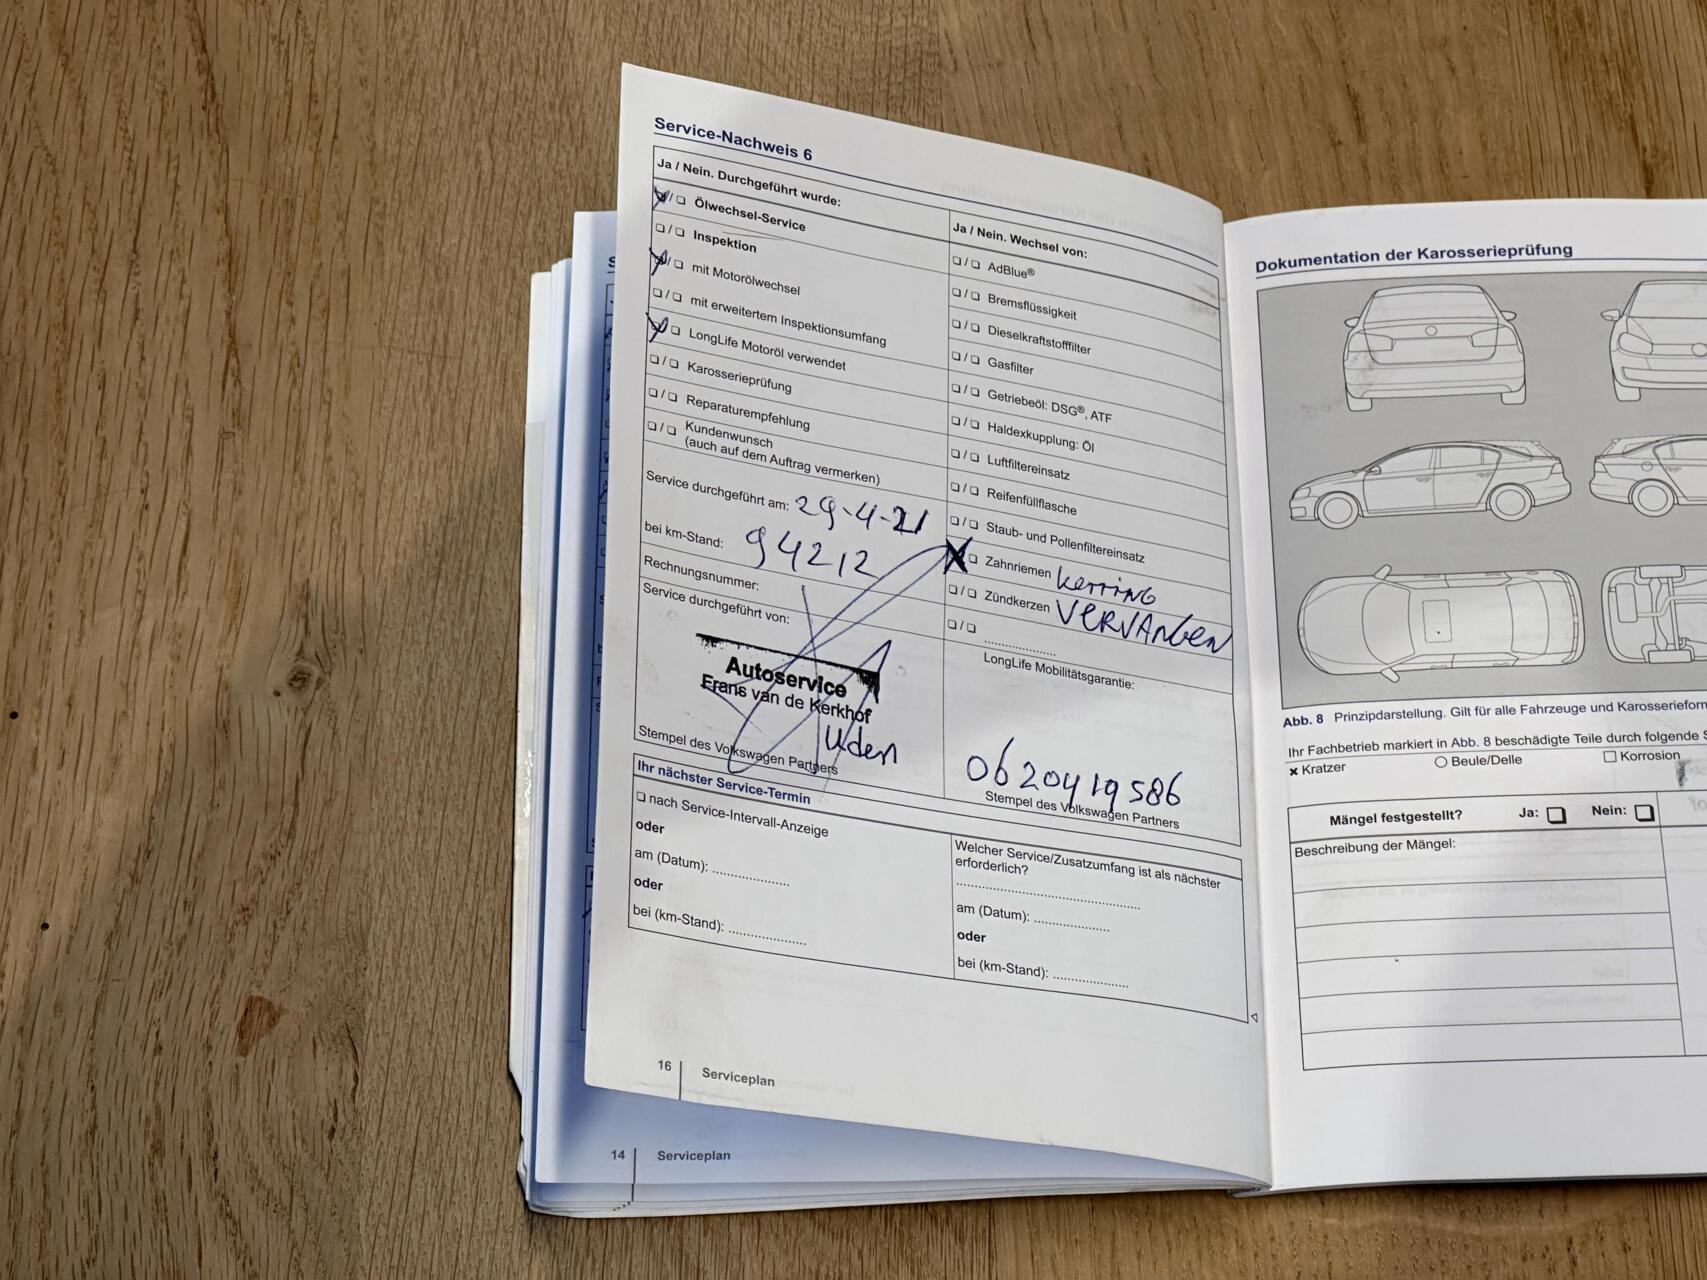 Service-Nachweis 6
Ja / Nein. Durchgeführt wurde:
❏ / ❏ Ölwechsel-Service
❏ / ❏ Inspektion
❏ / ❏ mit Motorölwechsel
❏ / ❏ mit erweitertem Inspektionsumfang
❏ / ❏ LongLife Motoröl verwendet
❏ / ❏ Karosserieprüfung
❏ / ❏ Reparaturempfehlung
❏ / ❏ Kundenwunsch
(auch auf dem Auftrag vermerken)
Service durchgeführt am: 29-4-21
bei km-Stand: 94212
Rechnungsnummer:
Service durchgeführt von:
Autoservice
Frans van de Kerkhof
Uden
Stempel des Volkswagen Partners
Ja / Nein. Wechsel von:
❏ / ❏ AdBlue®
❏ / ❏ Bremsflüssigkeit
❏ / ❏ Dieselkraftstofffilter
❏ / ❏ Gasfilter
❏ / ❏ Getriebeöl: DSG®, ATF
❏ / ❏ Haldexkupplung: Öl
❏ / ❏ Luftfiltereinsatz
❏ / ❏ Reifenfüllflasche
❏ / ❏ Staub- und Pollenfiltereinsatz
❏ Zahnriemen kerring
❏ / ❏ Zündkerzen VERVANGEN
❏ / ❏ ....................
LongLife Mobilitätsgarantie:
0620419586
Stempel des Volkswagen Partners
Ihr nächster Service-Termin
❏ nach Service-Intervall-Anzeige
oder
am (Datum): ....................
oder
bei (km-Stand): ....................
Welcher Service/Zusatzumfang ist als nächster
erforderlich?
am (Datum): ....................
oder
bei (km-Stand): ....................
16 Serviceplan
14 Serviceplan
Dokumentation der Karosserieprüfung
Abb. 8 Prinzipdarstellung. Gilt für alle Fahrzeuge und
Ihr Fachbetrieb markiert in Abb. 8 beschädigte Teile durch folgende
× Kratzer
○ Beule/Delle
☐ Korrosion
Mängel festgestellt? Ja: ❏ Nein: ❏
Beschreibung der Mängel: